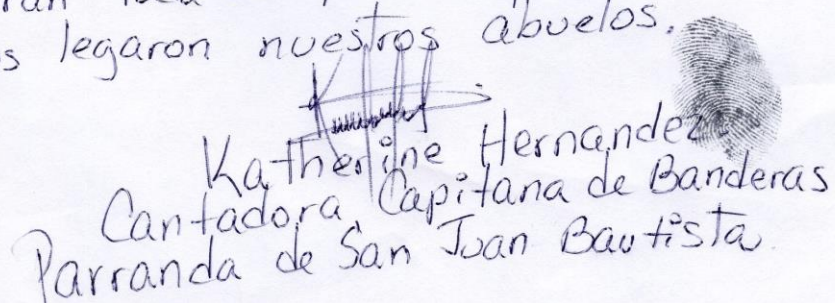 legaron nuestros abuelos.
Katherine Hernandez
Cantadora, Capitana de Banderas
Parranda de San Juan Bautista